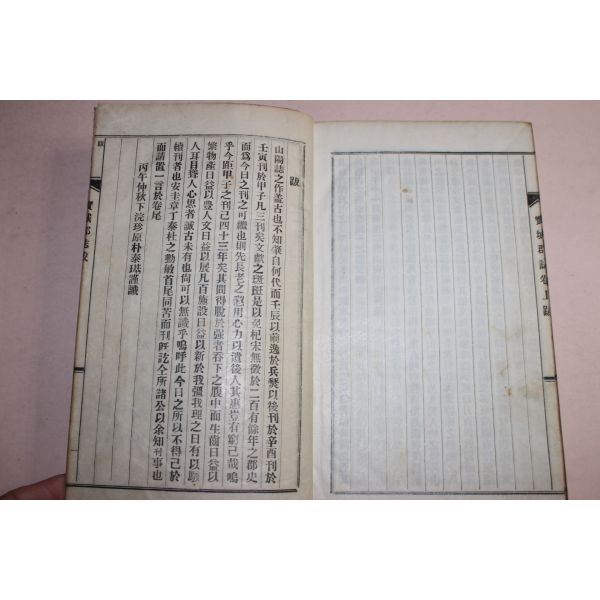 寶城郡誌卷上跋
跋
山陽誌之作盖古也不知肇自何代而壬辰以前逸於兵燹以後刊於辛酉刊於
壬寅刊於甲子凡三刊矣文獻之斑斑是以免杞宋無徵於二百有餘年之郡史
而爲今日之刊之可繼也則先長老之 用心力以遺後人其惠豈有窮已哉嗚
乎今距甲子之刊已四十三年矣其間得脫於强者吞下之腹中而生齒日益以
繁物產日益以豊人文日益以展凡百施設日益以新於我疆我理之日有以
人耳目聳人心思者誠古未有也尙可以無識乎嗚呼此今日之所以不得已於
續刊者也安圭章丁泰杜之勳敏首尾同苦而刊旣訖仝所諸公以余知刊事也
而請置一言於卷尾
丙午仲秋下浣珍原朴泰 謹識
寶城郡誌跋